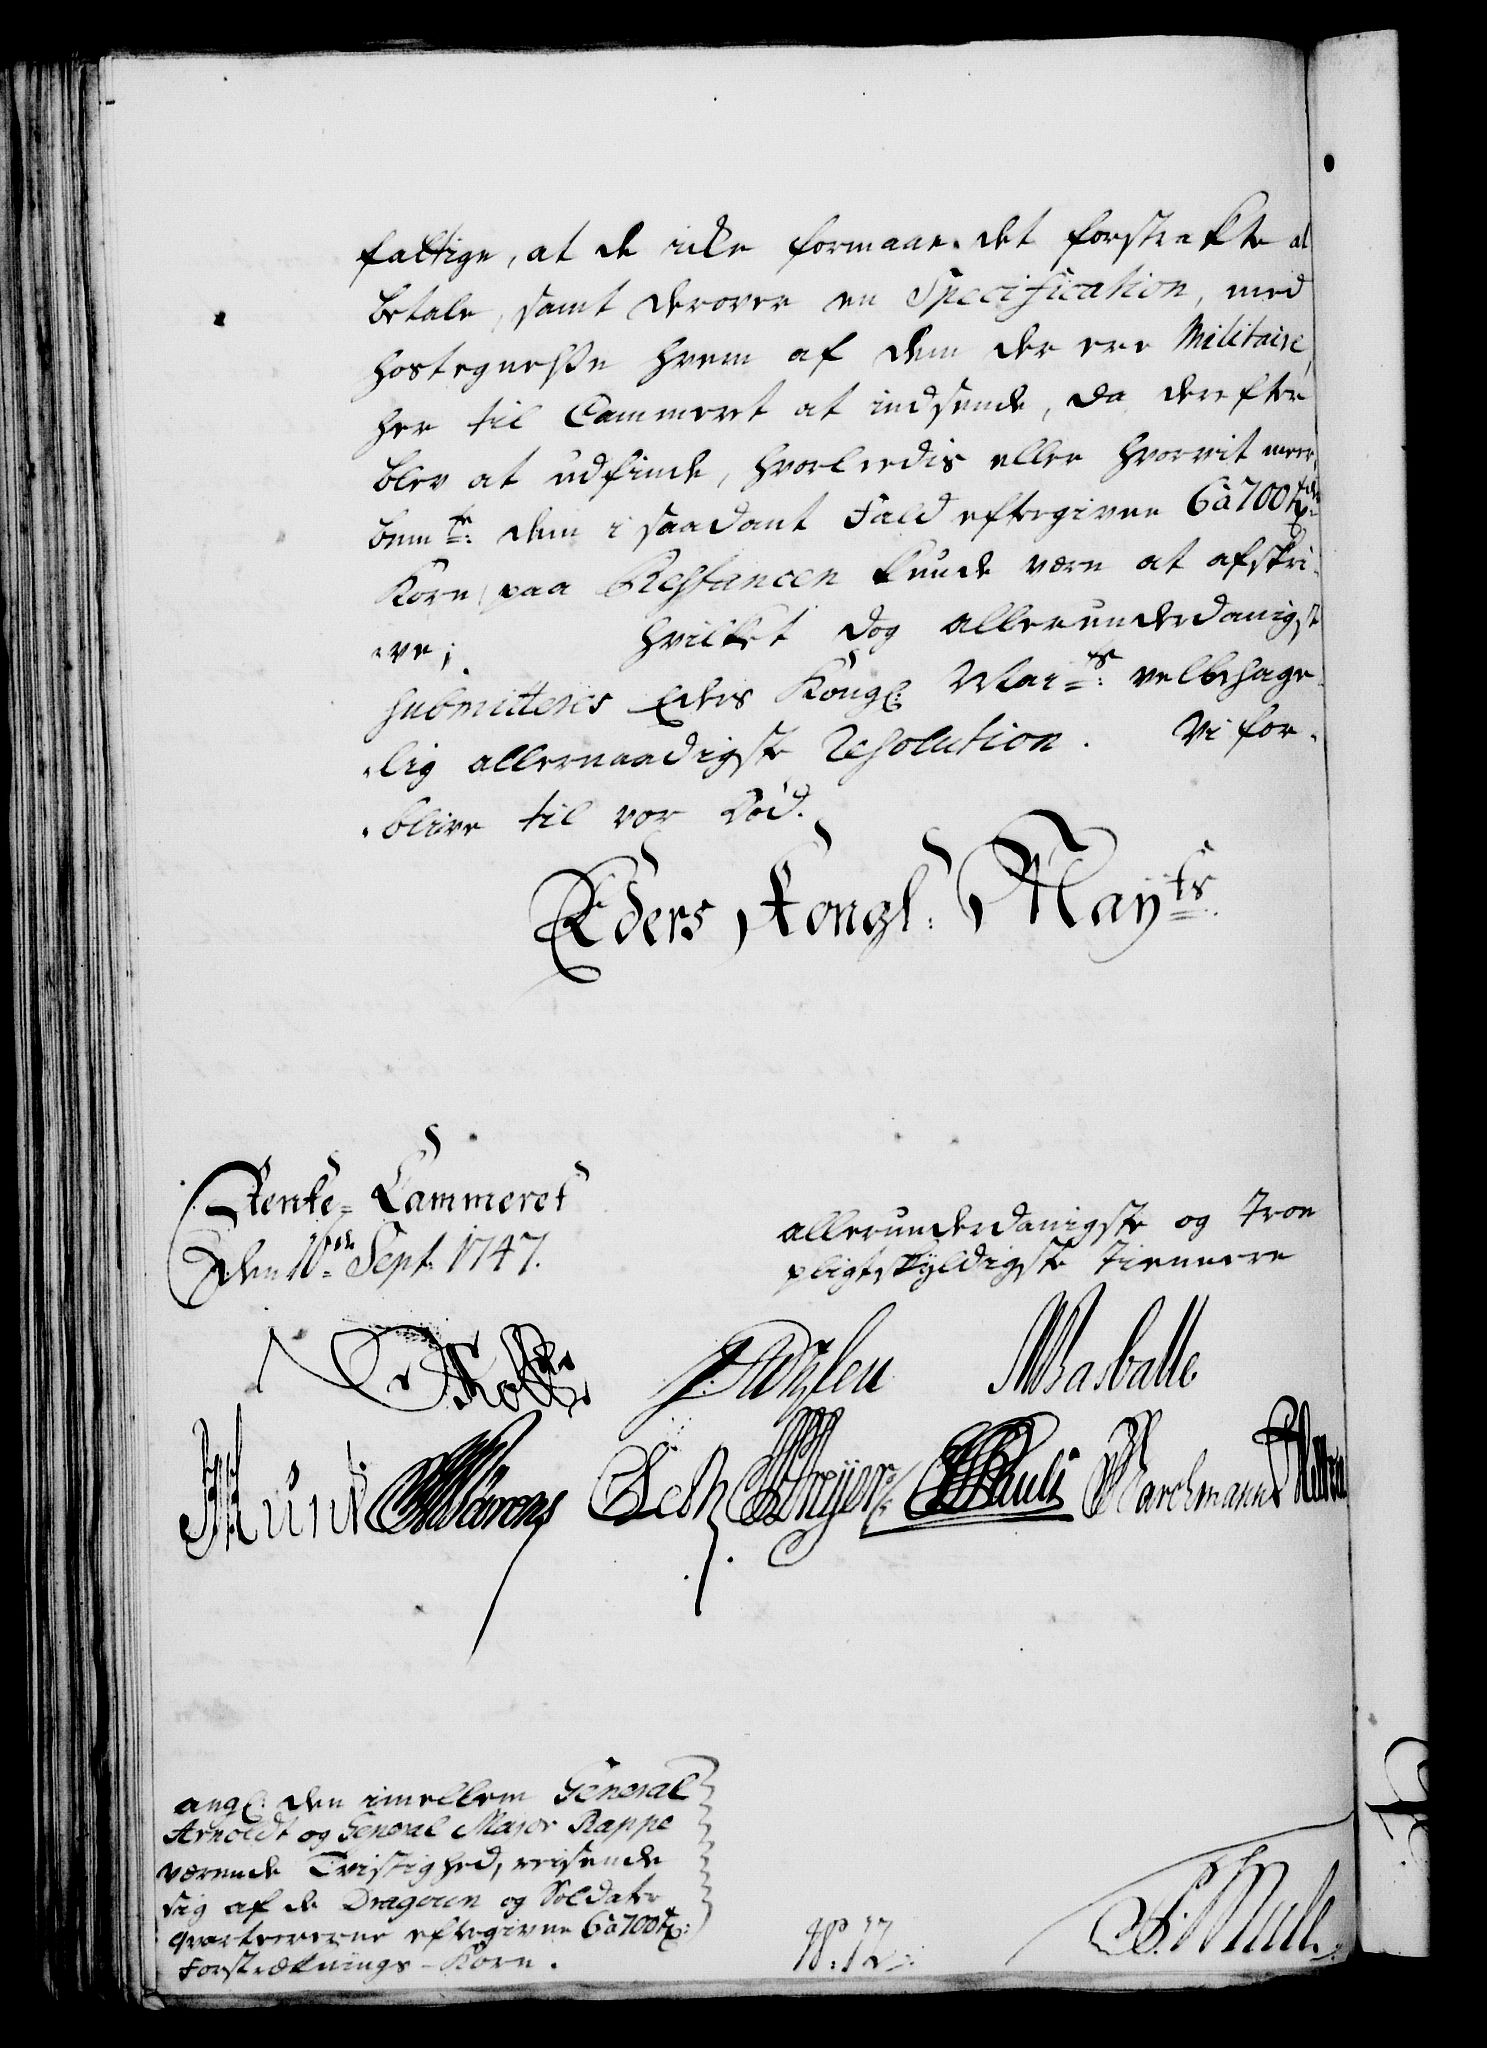 fattige, at de icke formaae det forstrakte at
betale, samt derover en Specification, med
hostegnelse hvem af dem der ere Militaire,
her til Cammeret at indsende, da derefter
blev at udfinde, hvorledis eller hvorvit meer¬
bem.te dem i saadant Fald eftergivne 6 à 700 Tr:
Korn paa Restancen kunde være at afskri¬
ve; hvilket dog allerunderdanigst
submitteres Eders Kongl: Mai.ts velbehage¬
lig allernaadigste Resolution. Vi for¬
blive til vor Død.
Eders Kongl: May.ts
Rente-Cammeret
den 16.de Sept: 1747.
allerunderdanigste og troe
pligtskyldigste tiennere
Holst
JWasballe
Mund Wärens Selch Pauli Marchmann
angl: den imellem General
Arnoldt og General Major Rappe
værende Tvistighed, reisende
sig af de Dragoun og Soldater
qvartererne eftergivne 6 à 700 Tr:
Forstræknings-Korn.
N: 12.
F: Mull